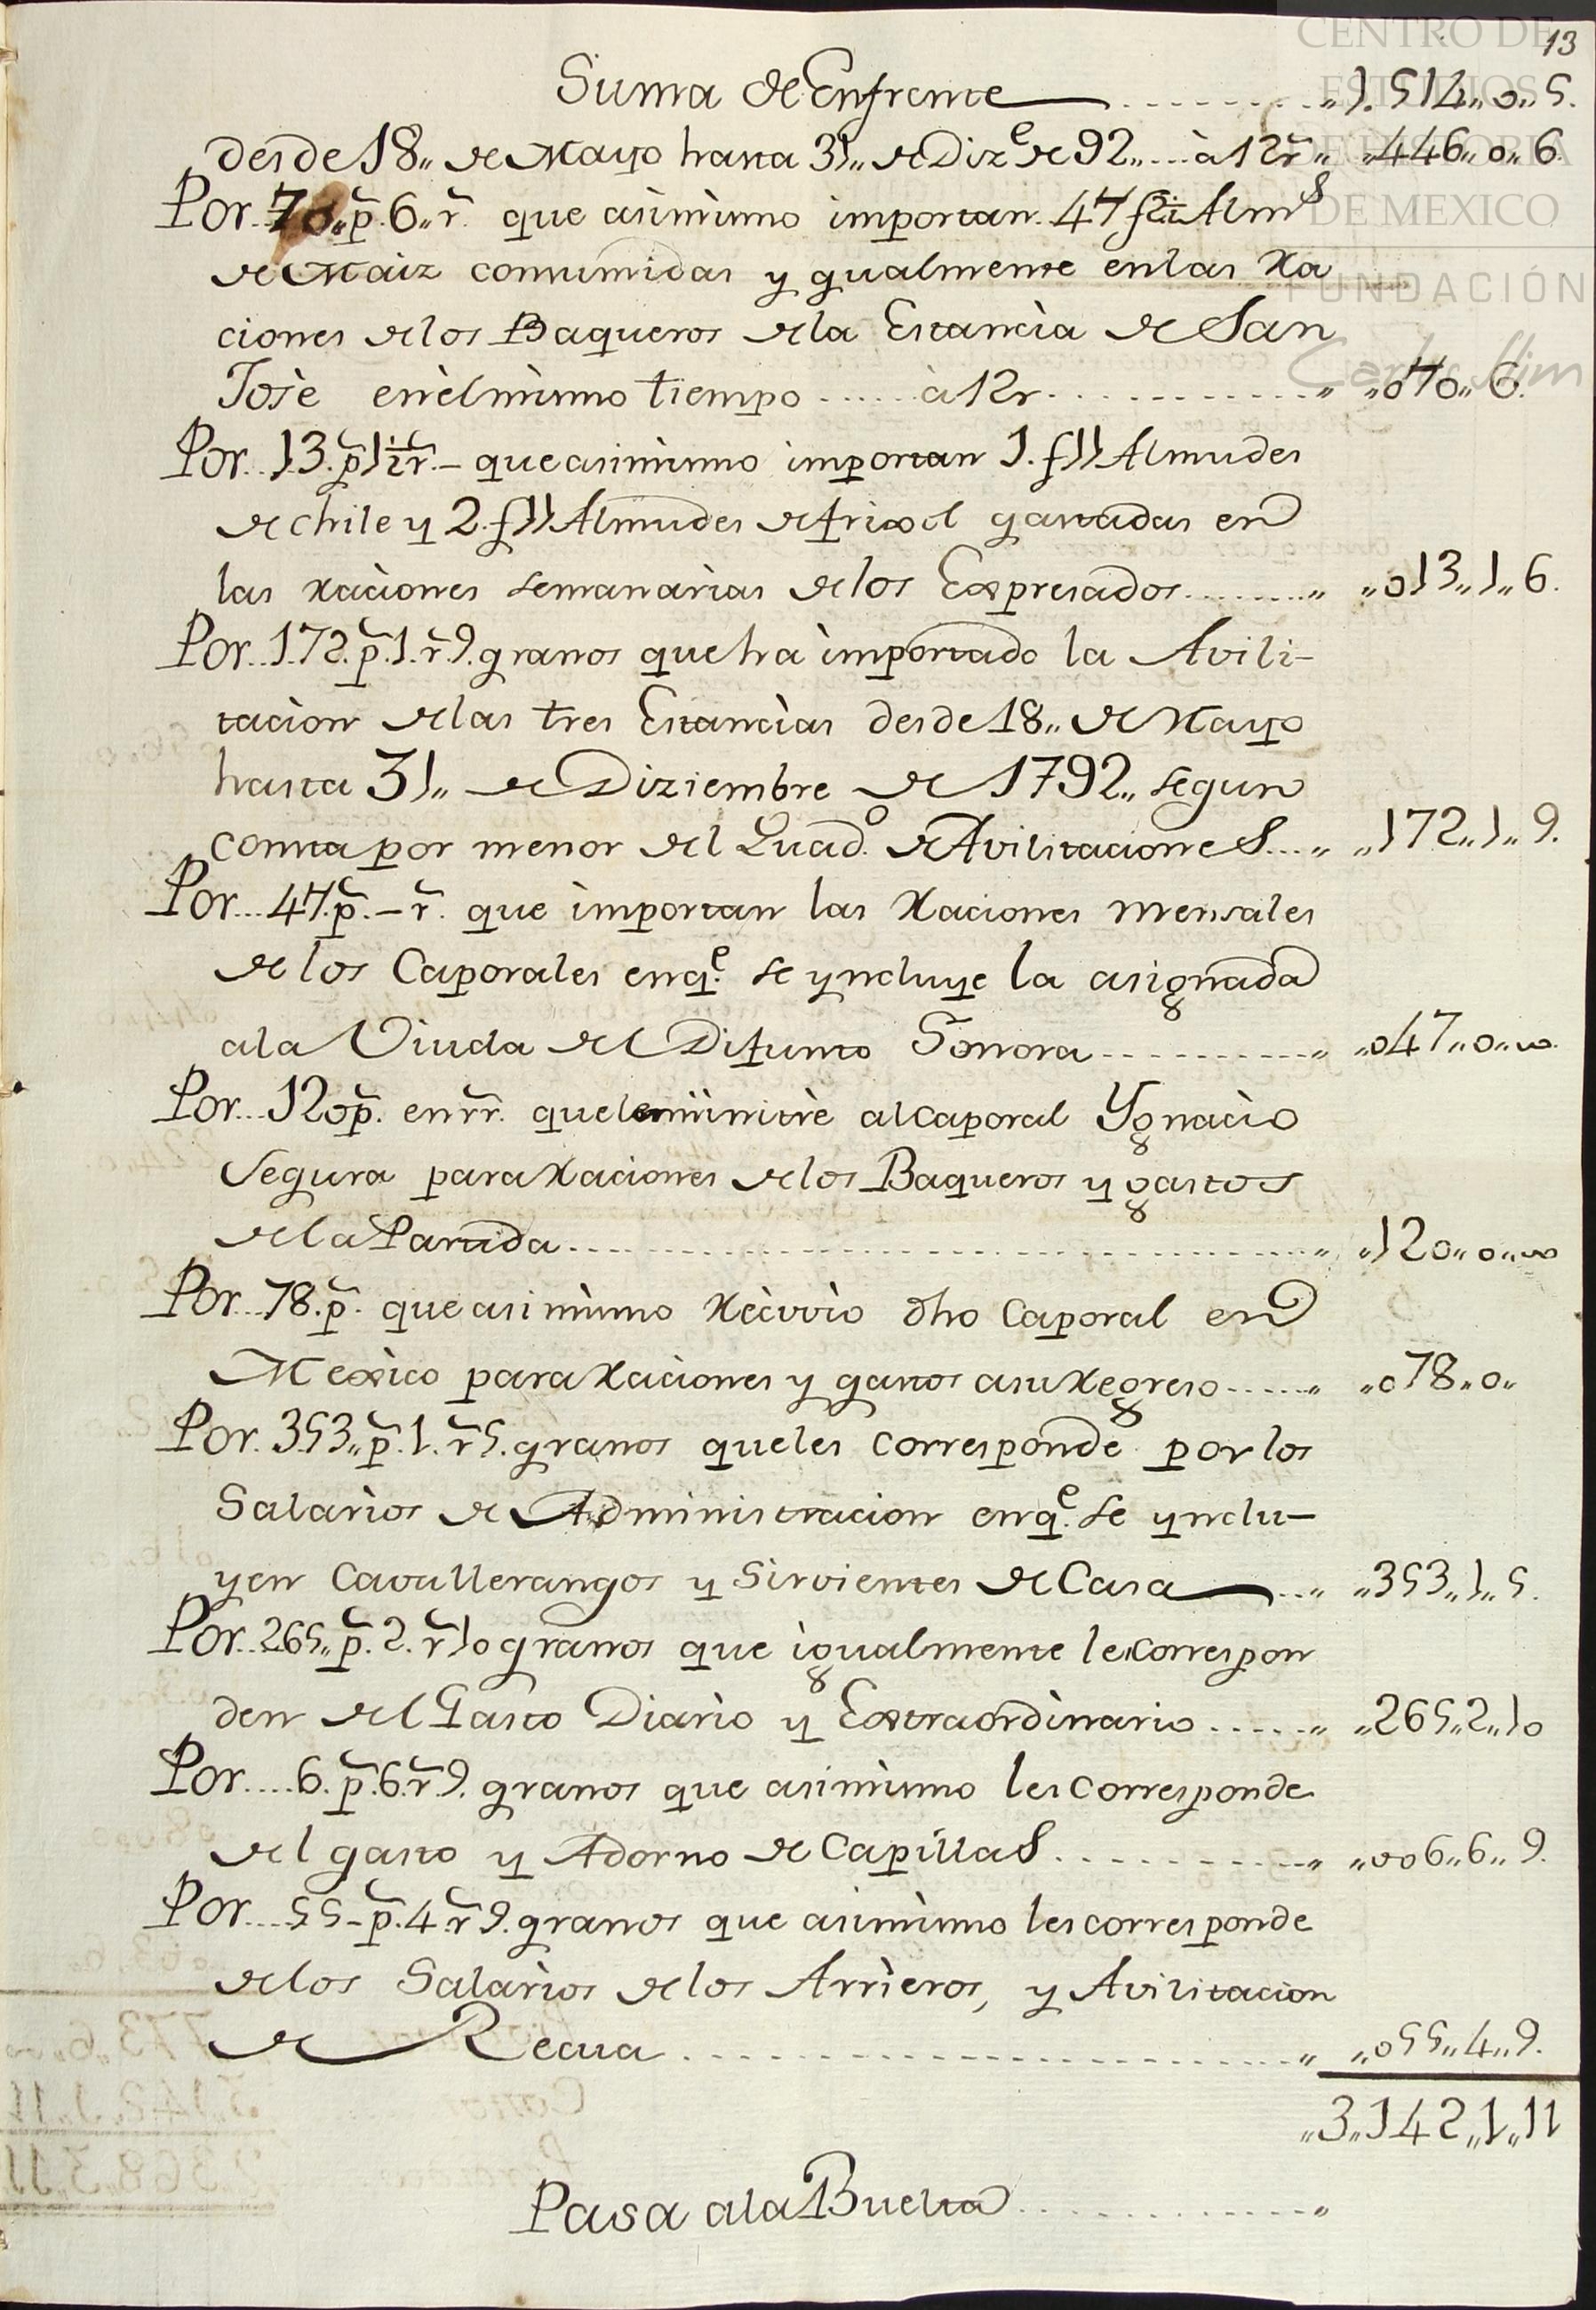 13
CENTRO DE
ESTUDIOS
DE HISTORIA
DE MEXICO
FUNDACIÓN
Carlos Slim
Suma de Enfrente ............ „ 1.514„ 0„ 5.
desde 18„ de Mayo hasta 31„ de Diz.e de 92„ .... à 12 r.̃ „ „446„ 0„ 6.
Por.. 70„ p.̃ 6„ r.̃ que asimismo importan 47 f.s Alm.s
de Maiz consumidas y gualmente en las Ra
ciones de los Baqueros de la Estancia de San
Josè en èl mismo tiempo ...... à 12 r. ............ „ „070„ 6.
Por.. 13. p.̃ 1½ r.̃ – que asimismo importan 1. f 11 Almudes
de chile y 2. f 11 Almudes de frixol gastadas en
las raciones semanarias de los Expresados ......... „ „013„ 1„ 6.
Por.. 172. p.̃ 1. r.̃ 9. granos que ha importado la Avili-
tacion de las tres Estancias desde 18„ de Mayo
hasta 31„ de Diziembre de 1792„ segun
consta por menor del Quad.o de Avilitaciones .... „ „172„ 1„ 9.
Por... 47. p.̃ – r.̃ que importan las Raciones mensales
de los Caporales en q.e se yncluye la asignada
a la Viuda del Difunto Sonora ........... „ „047„ 0„ 00.
Por... 120 p.̃ en rr.̃ que le ministrè al caporal Ygnacio
Segura para Raciones de los Baqueros y gastos
de la Partida ........................ „ „120„ 0„ 00
Por.. 78. p.̃ que asi mismo Recivio dho Caporal en
Mexico para Raciones y gastos a su Regreso ...... „ „078„ 0„
Por. 353„ p.̃ 1. r.̃ 5. granos que les corresponde por los
Salarios de Administracion en q.e se ynclu–
yen Cavallerangos y Sirvientes de Casa ... „ „353„ 1„ 5.
Por.. 265„ p.̃ 2. r.̃ 10 granos que igualmente les correspon
den del Gasto Diario y Extraordinario ...... „ „265„ 2„ 10
Por.... 6. p.̃ 6. r.̃ 9. granos que asimismo les corresponde
del gasto y Adorno de Capillas. .......... „ „006„ 6„ 9.
Por.... 55 – p.̃ 4. r.̃ 9. granos que asimismo les corresponde
de los Salarios de los Arrieros, y Avilitacion
de Recua ...................... „ „055„ 4„ 9.
„3„142„1„11
Pasa ala Buelta ............. „